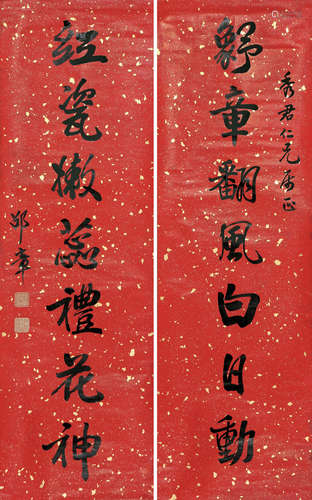 秀君仁兄属正
韶章翻風白日動
紅瓷嫩蕊禮花神
邵章